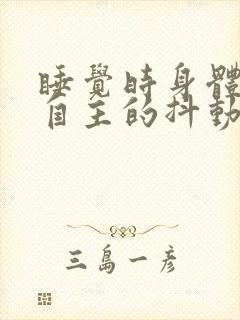 睡覺時身體
自主的抖動
三島一彥